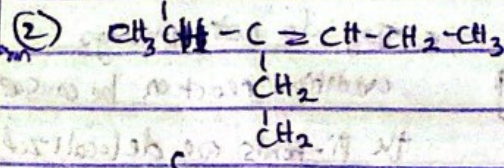 ② CH₃CH - C = CH-CH₂-CH₃
CH₂
CH₂